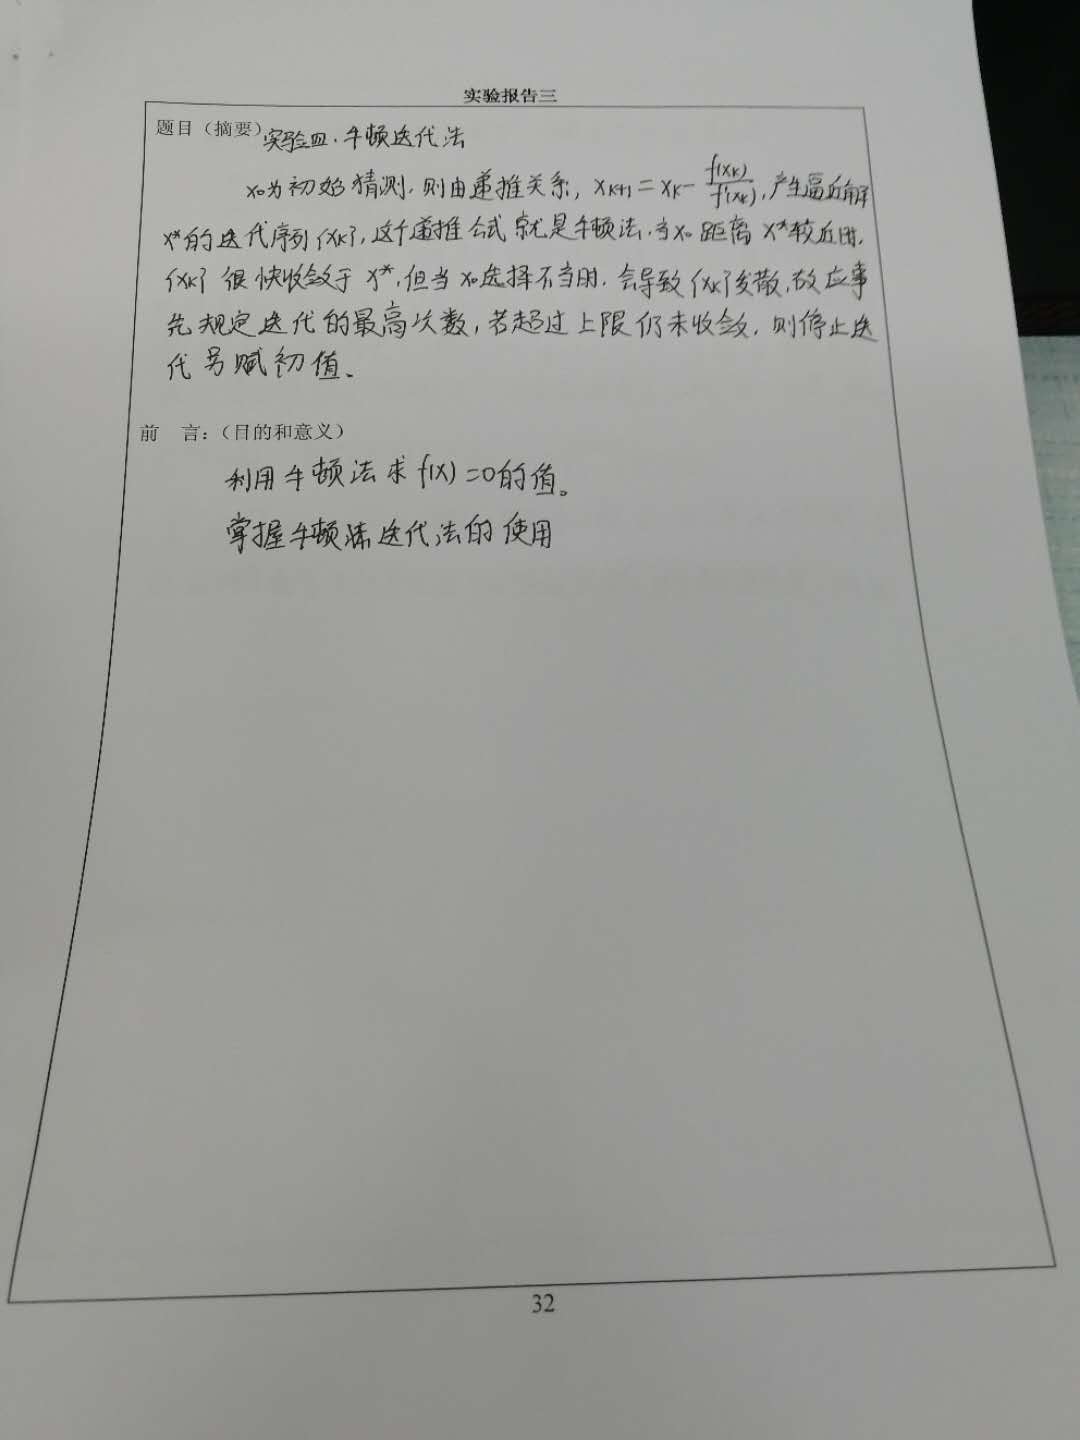 实验报告三
题目（摘要）实验四.牛顿迭代法
x₀为初始猜测，则由递推关系，xₖ₊₁=xₖ-f(xₖ)/f'(xₖ)，产生逼近解
x*的迭代序列{xₖ}，这个递推公式就是牛顿法.当x₀距离x*较近时，
{xₖ}很快收敛于x*，但当x₀选择不当时，会导致{xₖ}发散，故应事
先规定迭代的最高次数，若超过上限仍未收敛，则停止迭
代另赋初值、
前 言：（目的和意义）
利用牛顿法求f(x)=0的值。
掌握牛顿迭代法的使用
32